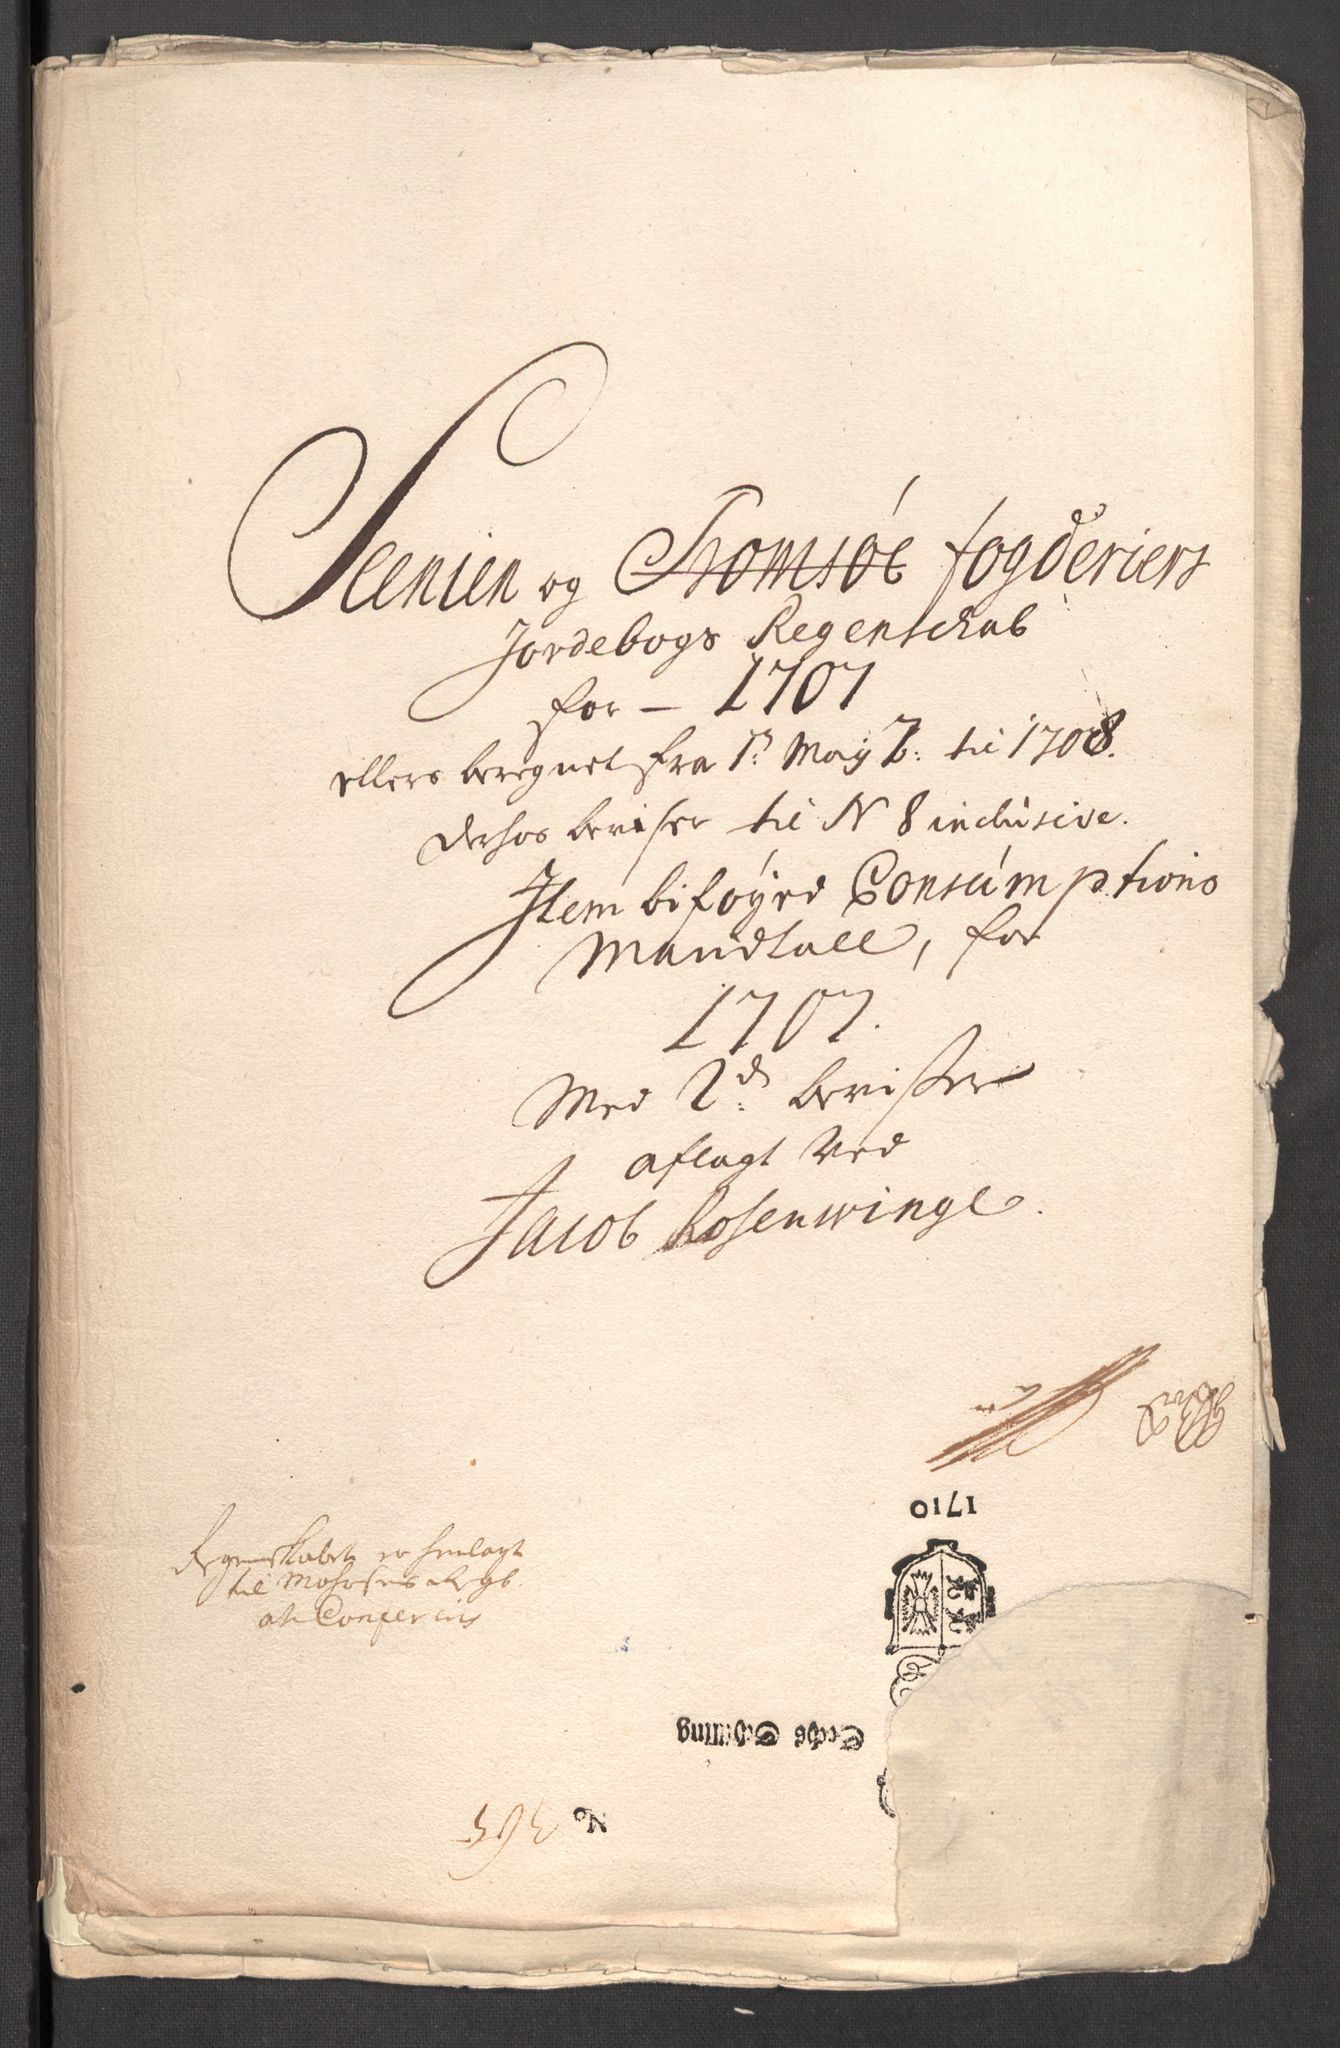 Sennien og Tromsøe fogderiers
Jordebogs Regenschab
for – 1707
ellers beregnet fra 1ᵐ: Maÿ 7: til 1708.
derhos beviser til N 8 inclusive.
Item biføyed Consumptions
Mandtall, for
1707.
Med 2ᵈ: beviser
aflagt Ved
Jacob Rosenwinge.
1710
Regenskabet er henlagt
til Mohrsens Regb.
at Conferere
Sechs Schilling
No 365